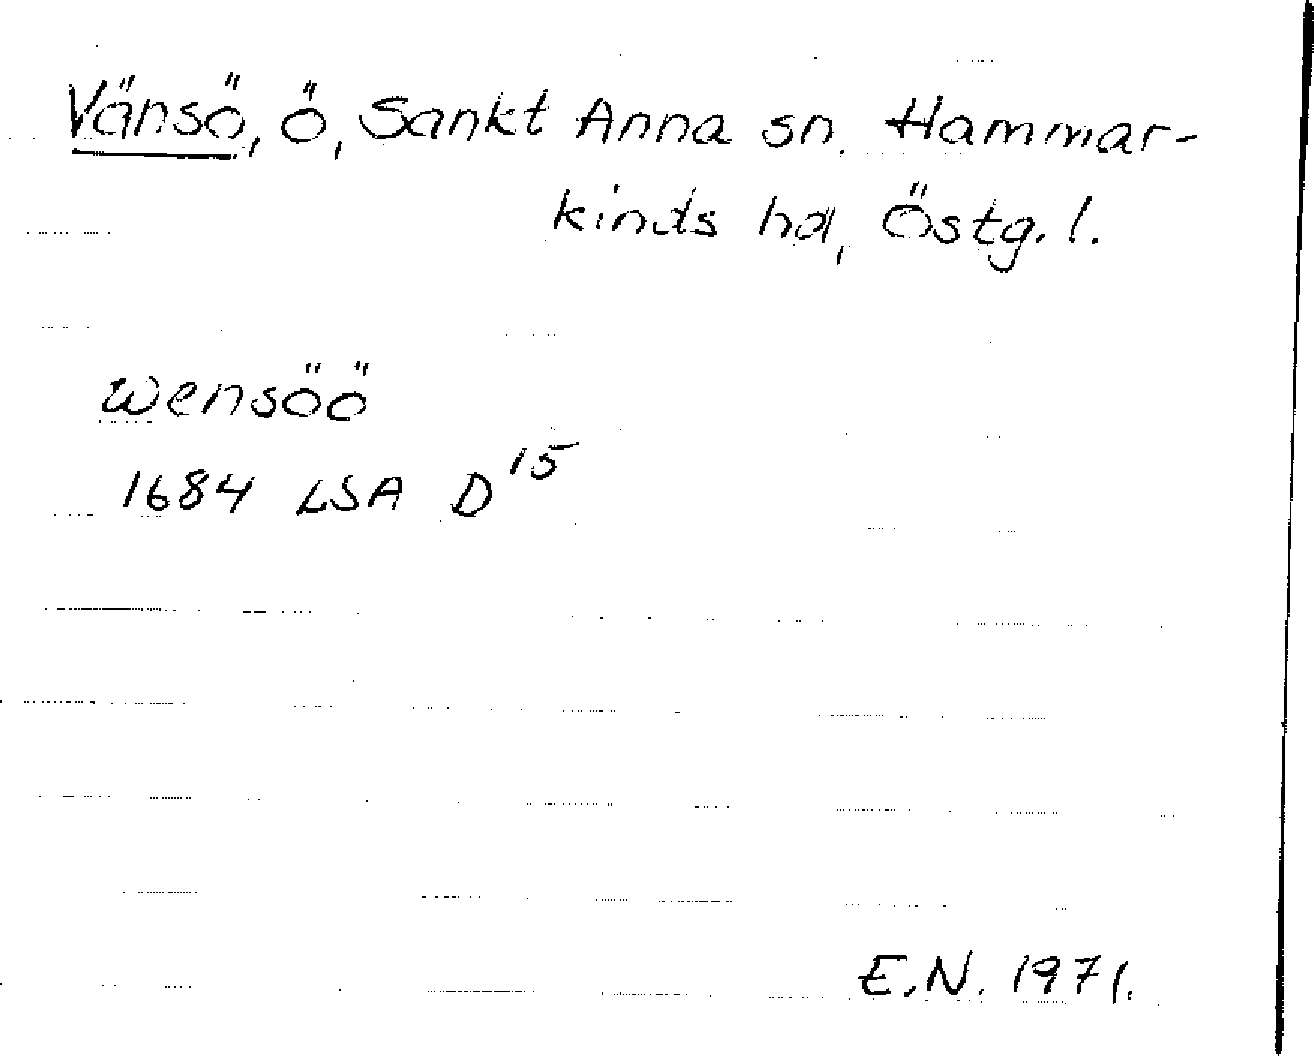 Vänsö, ö, Sankt Anna sn. Hammar-
kinds hd, Östg. l.
Wensöö
1684 LSA D15
E.N. 1971.